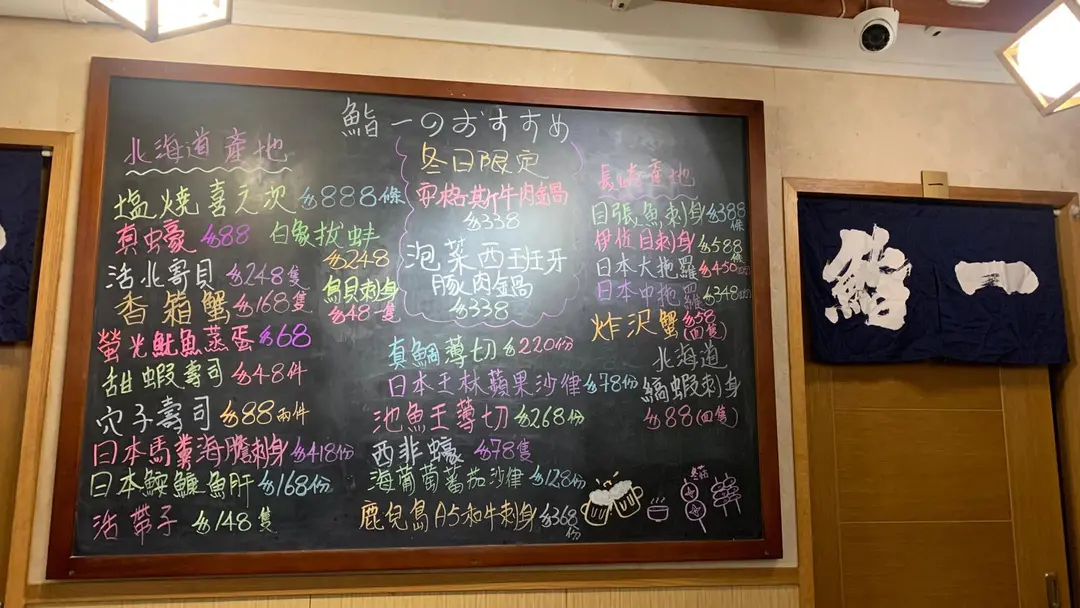 鮨一のおすすめ
北海道產地
塩燒喜之次 $888條
真虫豪 $88
白象拔蚌 $248
活北寄貝 $248隻
鳥貝刺身 $48一隻
香箱蟹 $168隻
螢光魷魚蒸蛋 $68
甜蝦壽司 $48件
穴子壽司 $88兩件
日本馬糞海膽刺身 $418份
日本鮟鱇魚肝 $168份
活帶子 $148隻
冬日限定
牛肉鍋
$338
泡菜西班牙
豚肉鍋
$338
真鯛薄切 $220份
日本王林蘋果沙律 $78份
池魚王薄切 $268份
西非蠔 $78隻
海葡萄蕃茄沙律 $128份
鹿兒島A5和牛刺身 $368份
長崎產地
目張魚刺身 $388條
伊佐目刺身 $588條
日本大拖羅 $450
日本中拖羅 $348
炸沢蟹 $58(四隻)
北海道
縞蝦刺身
$88(四隻)
鮨一
一